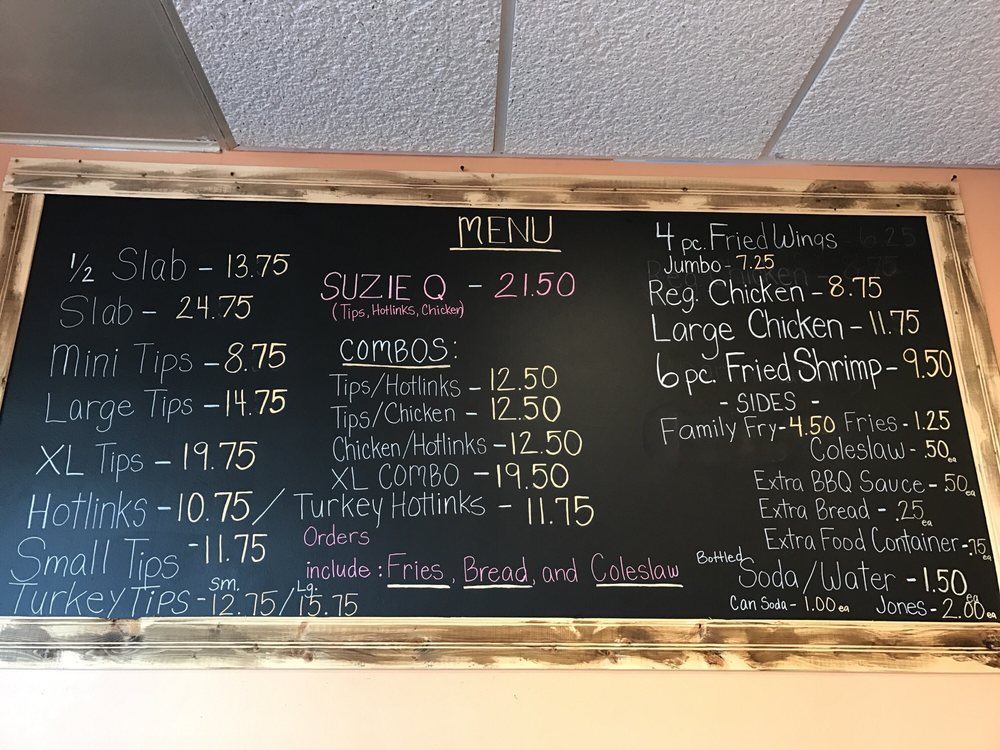 MENU
½ Slab - 13.75
Slab - 24.75
Mini Tips - 8.75
Large Tips - 14.75
XL Tips - 19.75
Hotlinks - 10.75 / Turkey Hotlinks - 11.75
Small Tips - 11.75
Sm. Lg.
Turkey Tips - 12.75/15.75
SUZIE Q - 21.50
(Tips, Hotlinks, Chicken)
COMBOS:
Tips/Hotlinks - 12.50
Tips/Chicken - 12.50
Chicken/Hotlinks - 12.50
XL COMBO - 19.50
Orders
include: Fries, Bread, and Coleslaw
4 pc. Fried Wings - 6.25
Jumbo - 7.25
Reg. Chicken - 8.75
Large Chicken - 11.75
6 pc. Fried Shrimp - 9.50
- SIDES -
Family Fry - 4.50 Fries - 1.25
Coleslaw - .50 ea
Extra BBQ Sauce - .50 ea
Extra Bread - .25 ea
Extra Food Container - .75 ea
Bottled
Soda/Water - 1.50 ea
Can Soda - 1.00 ea Jones - 2.00 ea